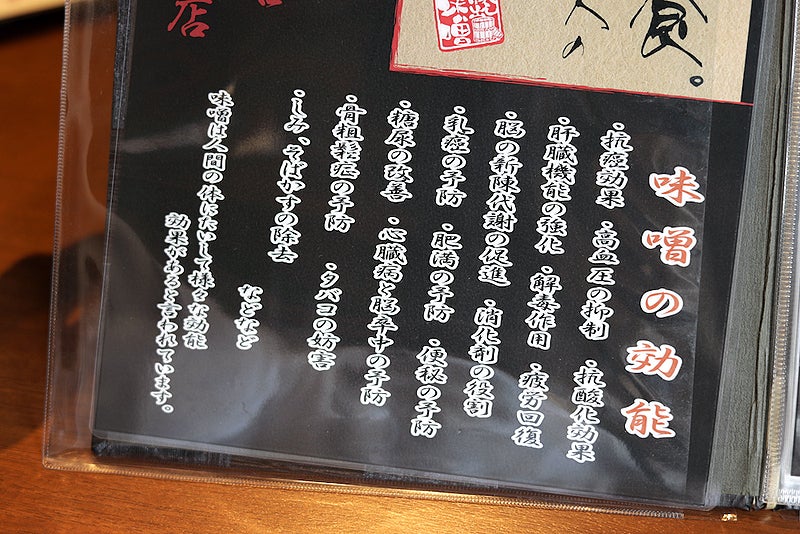 味噌の効能
・抗癌効果 ・高血圧の抑制 ・抗酸化効果
・肝臓機能の強化 ・解毒作用 ・疲労回復
・脳の新陳代謝の促進 ・消化剤の役割
・乳癌の予防 ・肥満の予防 ・便秘の予防
・糖尿の改善 ・心臓病と脳卒中の予防
・骨粗鬆症の予防 ・タバコの妨害
・しみ、そばかすの除去
などなど
味噌は人間の体にたいして様々な効能
効果があると言われています。
食。
人の
味噌
店